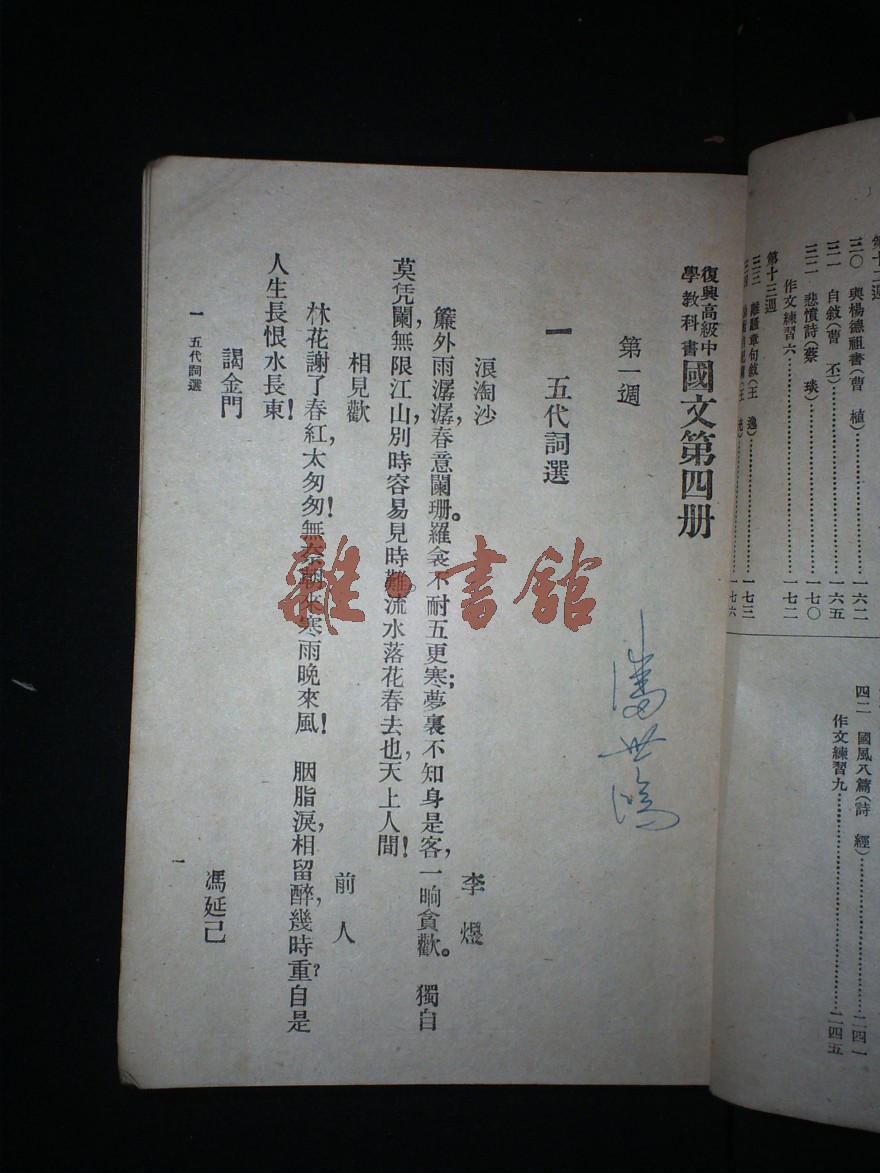 第十二週
三〇 與楊德祖書(曹 植)……一六二
三一 自敘(曹 丕)……一六五
三二 悲憤詩(蔡 琰)……一七〇
作文練習六……一七二
第十三週
三三 離騷章句敘(王 逸)……一七三
一七六
四二 國風八篇(詩 經)……二四一
作文練習九……二四五
復興高級中學教科書 國文第四册
第一週
一 五代詞選
浪淘沙 李煜
簾外雨潺潺,春意闌珊。羅衾不耐五更寒;夢裏不知身是客,一晌貪歡。 獨自
莫凭闌,無限江山,別時容易見時難。流水落花春去也,天上人間!
相見歡 前人
林花謝了春紅,太匆匆!無奈朝來寒雨晚來風! 胭脂淚,相留醉,幾時重?自是
人生長恨水長東!
謁金門 馮延己
一 五代詞選 一
潘世鴻
雜·書館